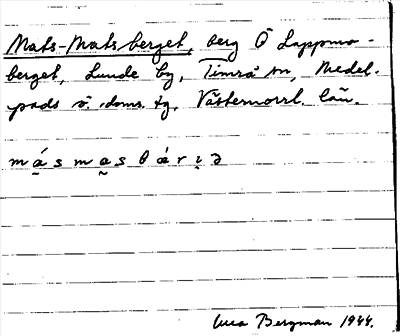 Mats-Matsberget, berg Ö Lappmo-
berget, Lunde by, Timrå sn, Medel-
pads ö. doms. tg, Västernorrl. län.
m á̰ s m a̰ s b á r ḭ ə
Bergman 1944.